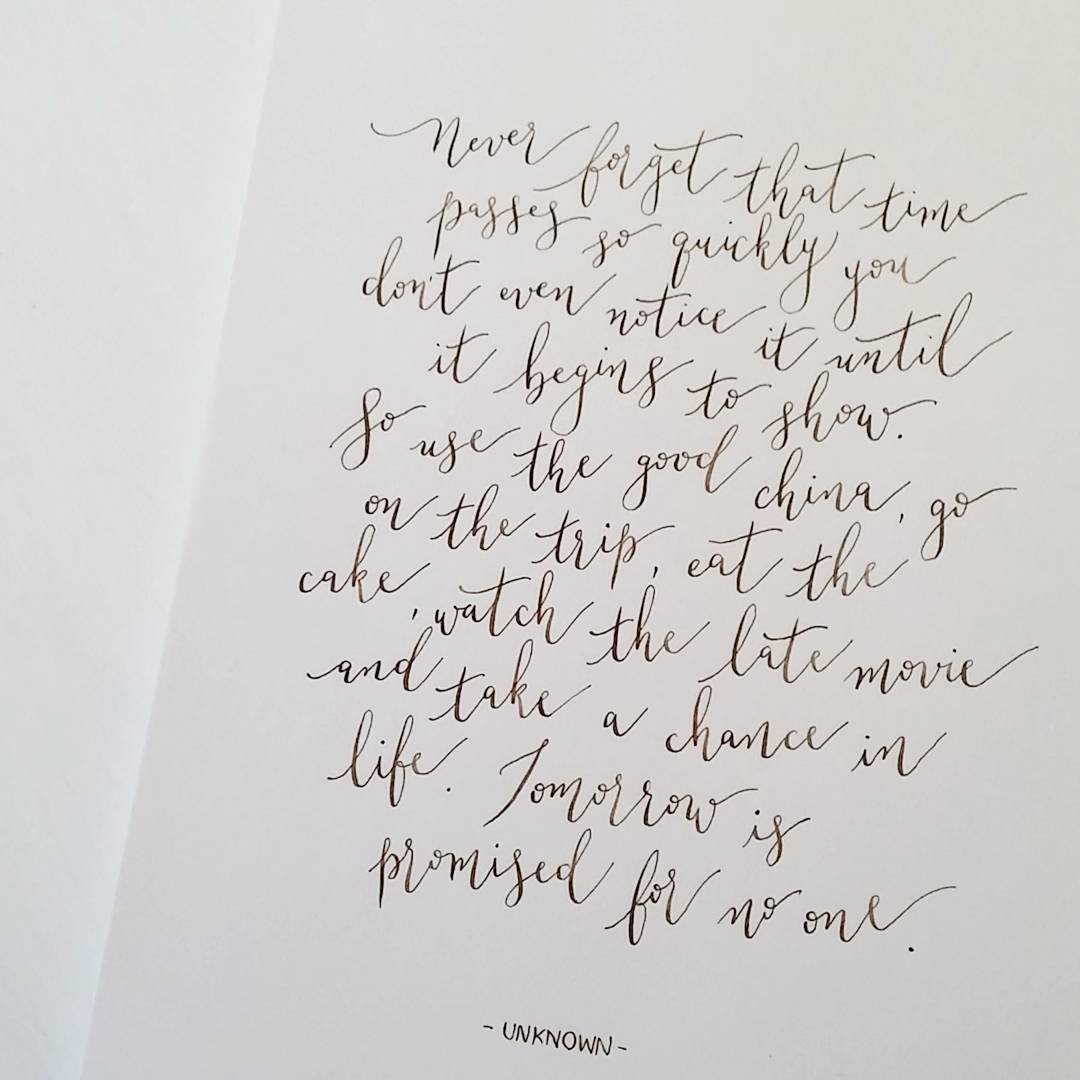 Never forget that time
passes so quickly you
don't even notice it until
it begins to show.
So use the good china, go
on the trip, eat the
cake, watch the late movie
and take a chance in
life. Tomorrow is
promised for no one.
- UNKNOWN -